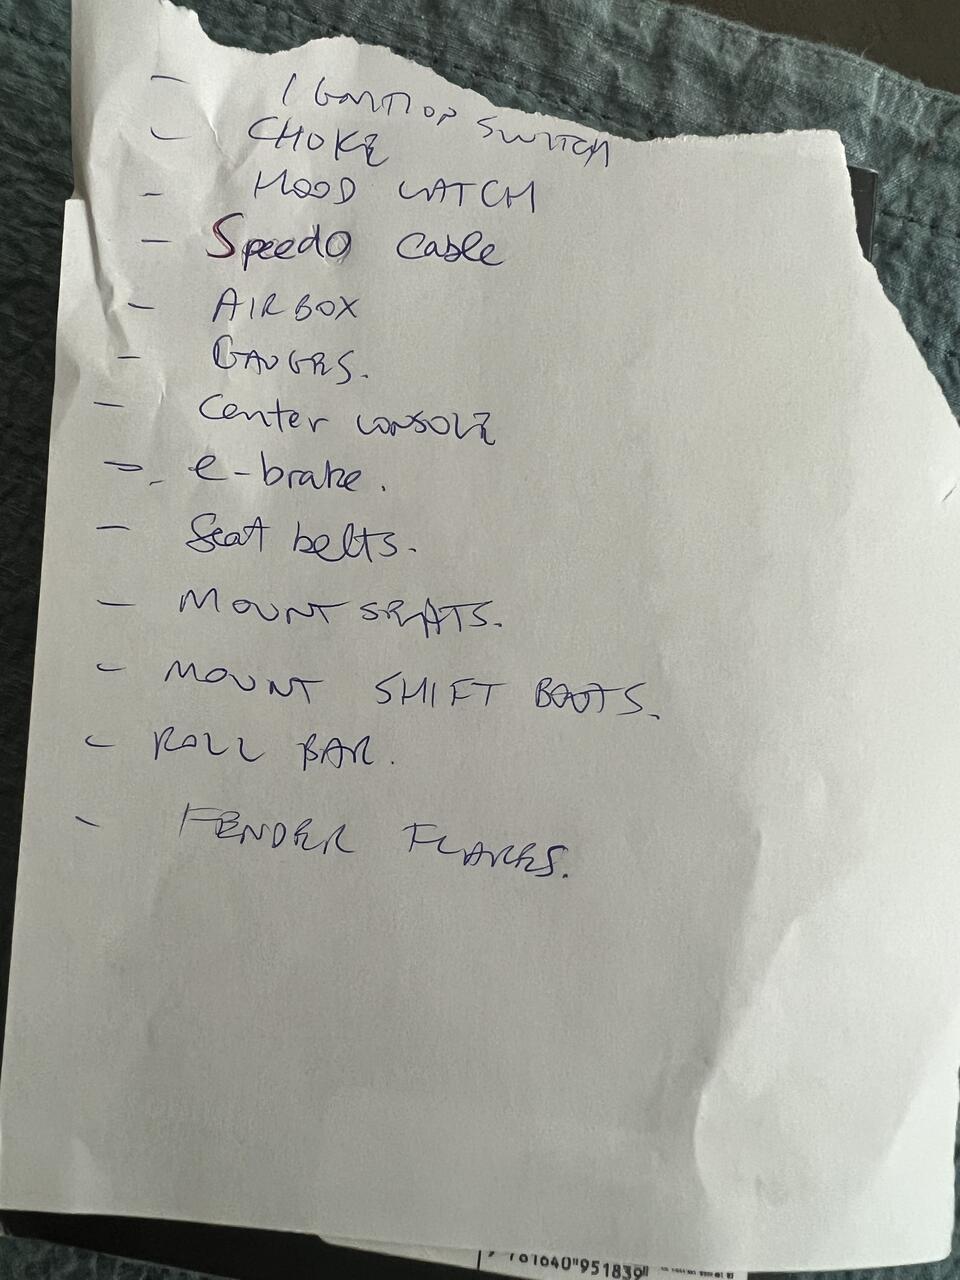 - IGNITION SWITCH
- CHOKE
- HOOD LATCH
- Speedo Cable
- AIRBOX
- GAUGES.
- Center CONSOLE
- e-brake.
- Seat belts.
- MOUNT SEATS.
- MOUNT SHIFT BOOTS.
- ROLL BAR.
- FENDER FLARES.
781640"951839"